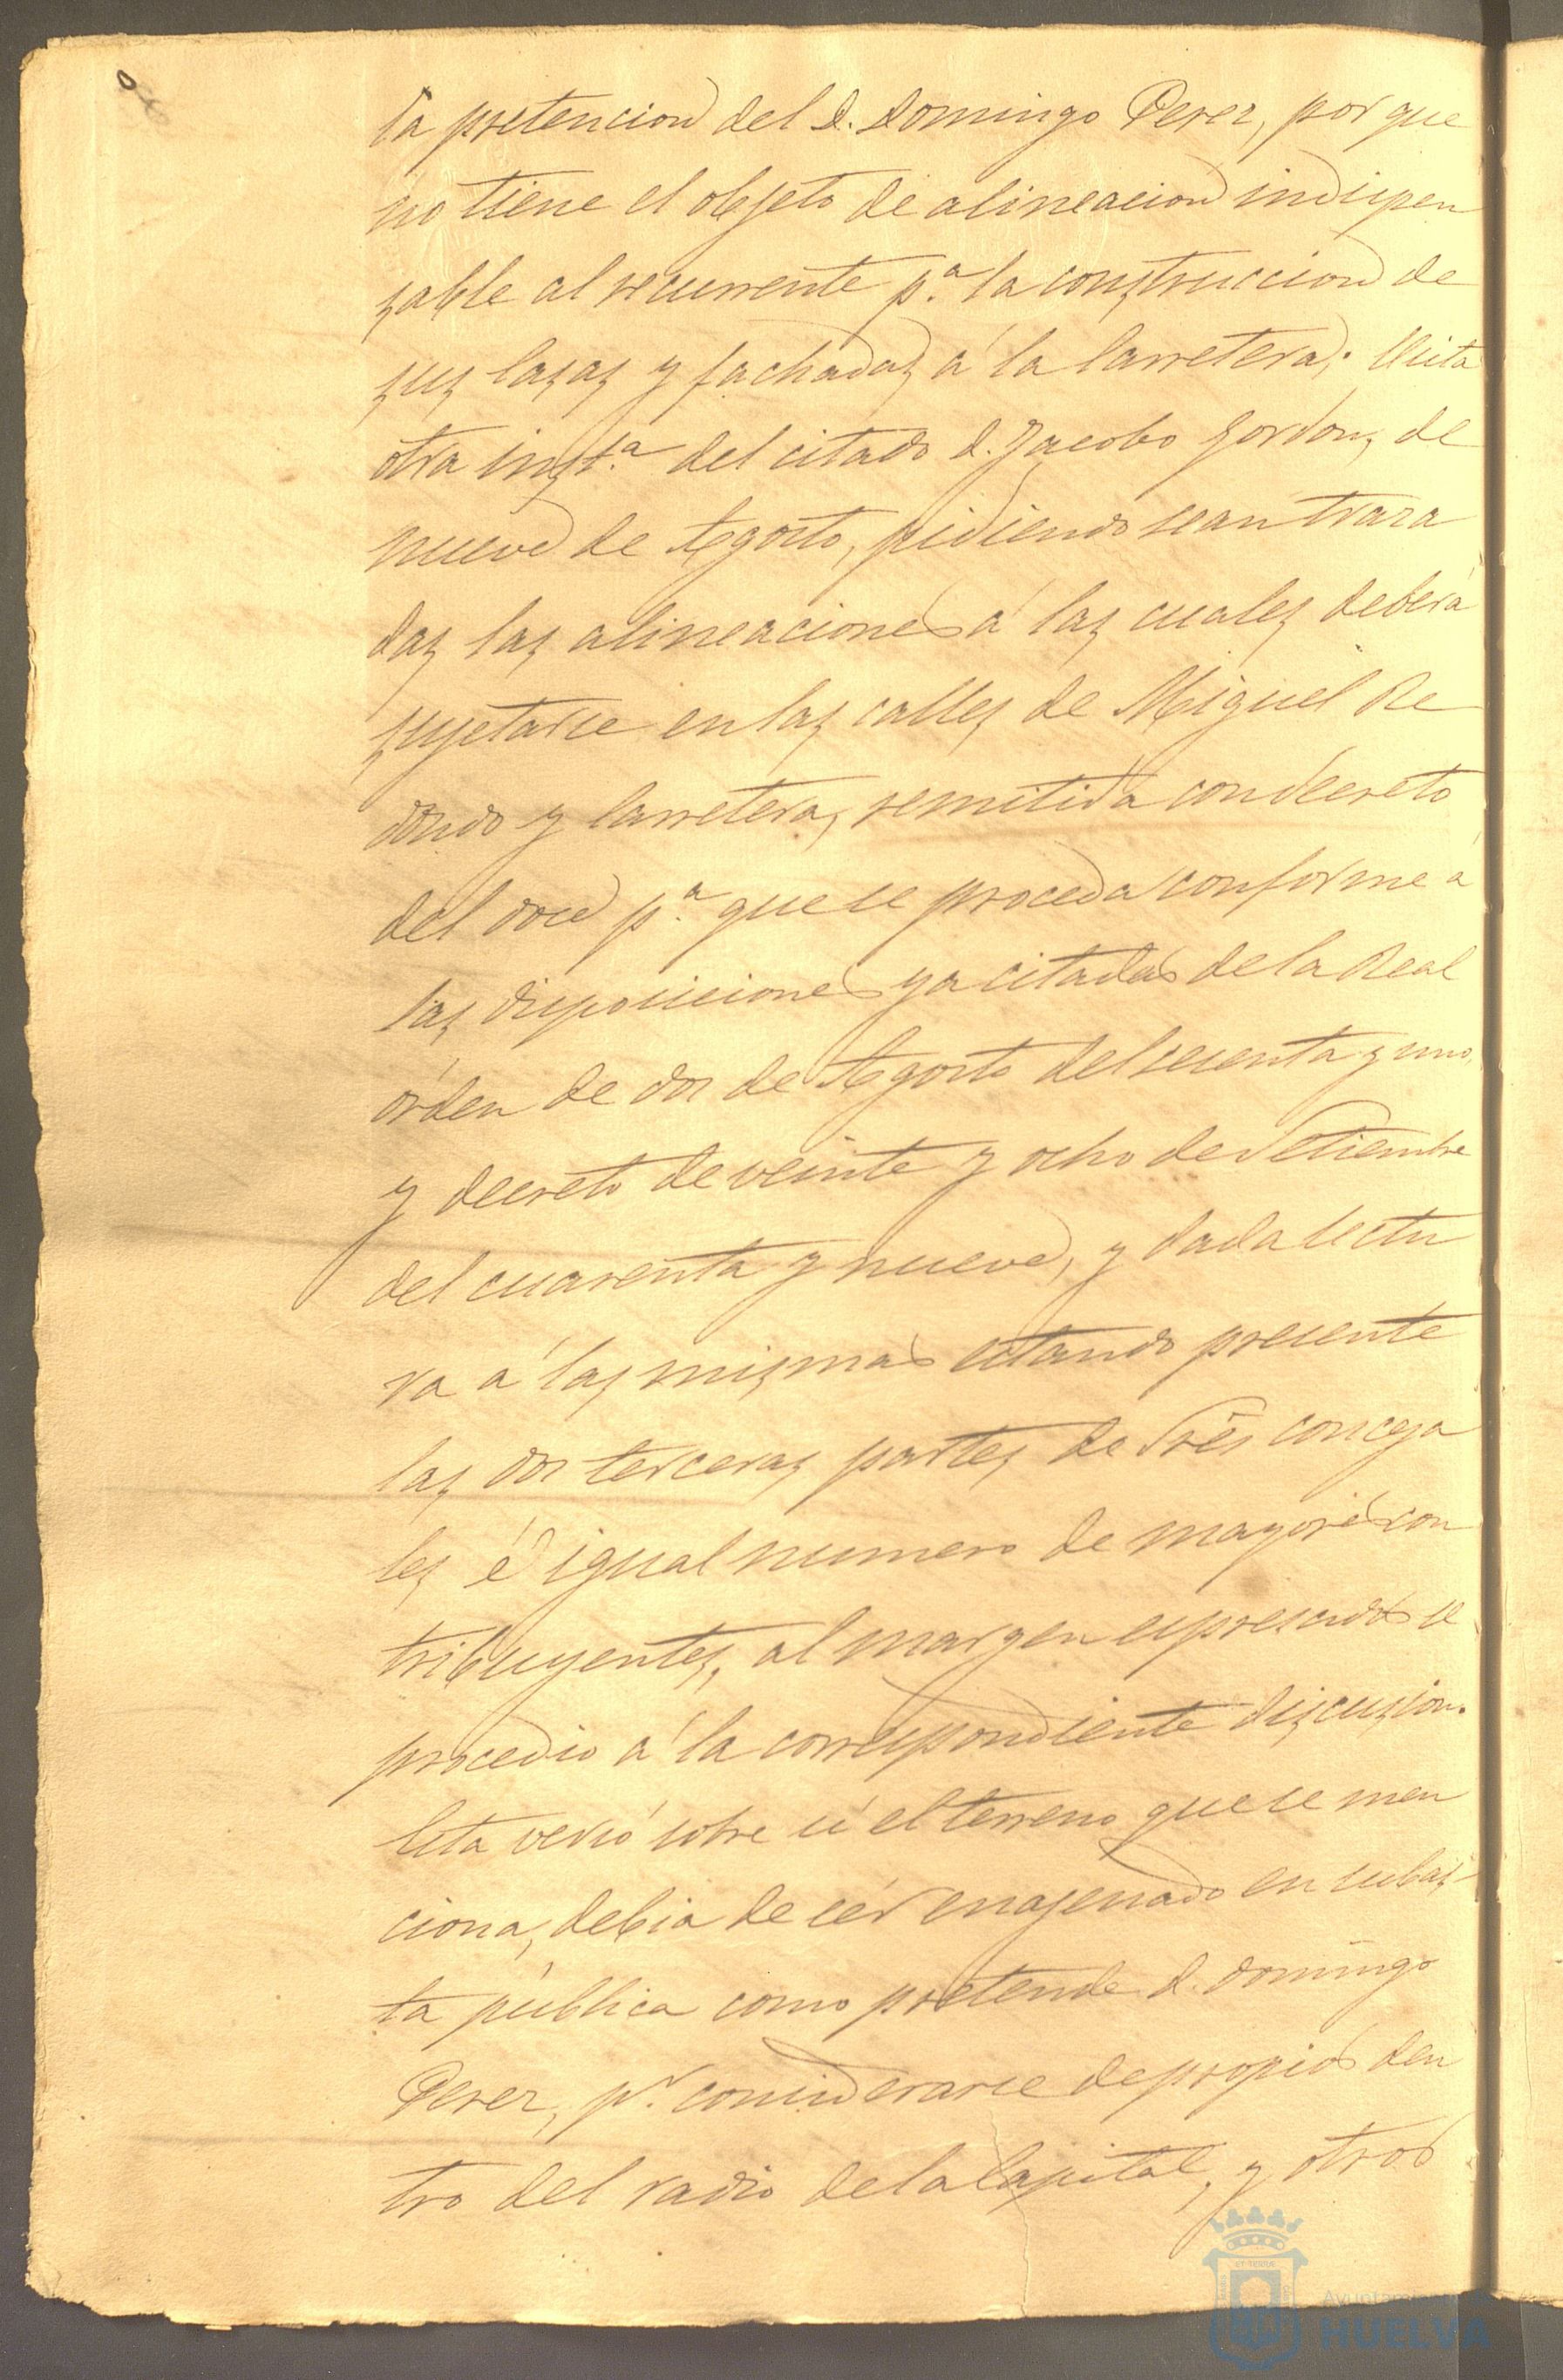 la pretencion del D. Domingo Perez, por que
no tiene el objeto de alineacion indispen
sable al recurrente p.ª la construccion de
sus Casas y fachadas á la Carretera; Vista
otra inst.ª del citado D. Jacobo Gordon, de
nueve de Agosto, pidiendo sean traza
das las alineaciones á las cuales deberá
sujetarse en las calles de Miguel Re
dondo y Carretera, remitida con decreto
del doce p.ª que se proceda conforme á
las disposiciones ya citadas de la Real
órden de dos de Agosto del sesenta y uno,
y decreto de veinte y ocho de Setiembre
del cuarenta y nueve, y dada lectu
ra á las mismas estando presente
las dos terceras partes de Sres conceja
les é igual numero de mayores con
tribuyentes, al margen espresados se
procedio á la correspondiente discusion.
Esta versó sobre si el terreno que se men
ciona, debia de sér enagenado en subas-
ta pública como pretende D. Domingo
Perez, p.r considerarse de propios den
tro del radio de la Capital, y otros
Ayuntamiento
HUELVA